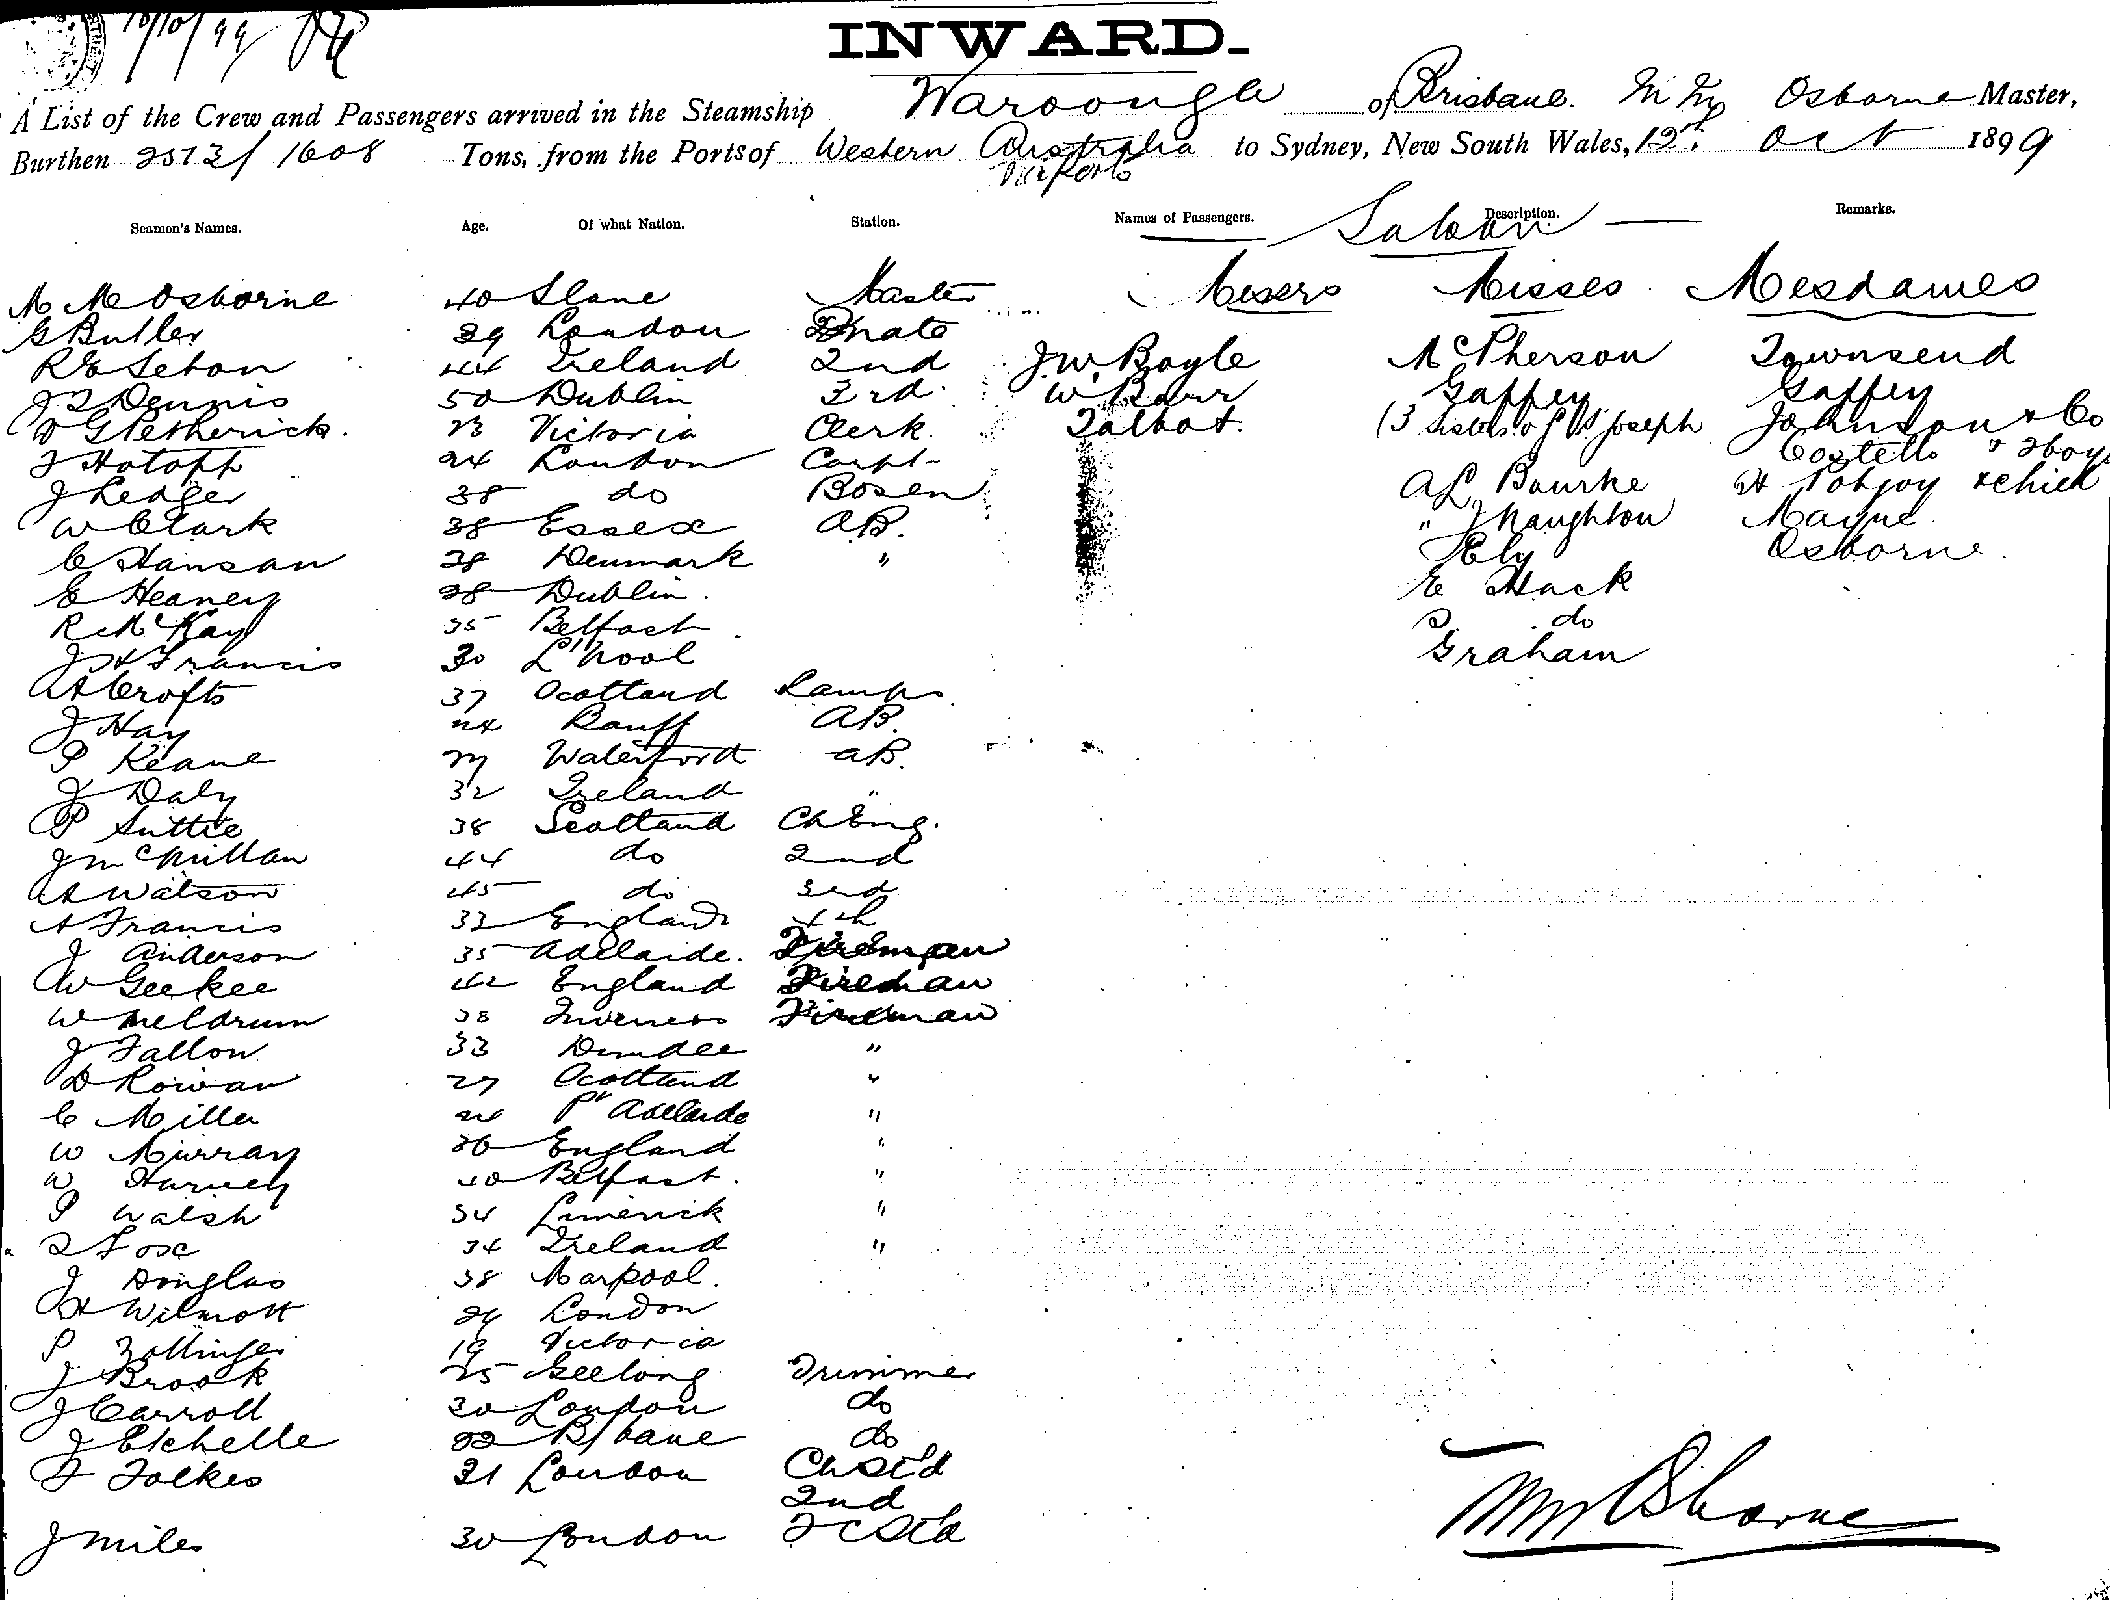 10/10/99
INWARD.
A List of the Crew and Passengers arrived in the Steamship Waroonga of Brisbane. Osborne Master,
Burthen 2513/1608 Tons, from the Ports of Western Australia to Sydney, New South Wales, 12th Oct 1899
via Ports
Seamen's Names. Age. Of what Nation. Station. Names of Passengers. Description. Remarks.
Saloon
M M Osborne 40 Slane Master Messrs Misses Mesdames
G Butler 39 London mate
R G Seton 44 Ireland 2nd J.W. Boyle McPherson Townsend
J S Dennis 50 Dublin 3rd W Barr Gaffey Gaffey
D G Hetherick 23 Victoria Clerk Talbot. (3 Sisters of St Joseph Johnson & Co
F Hotopp 24 London Carpt Costello & 2 boys
J Ledger 38 do Bosen A L Bourke H Pobjoy & child
W Clark 38 Essex AB. " J Naughton Mayne
C Hansan 28 Denmark " Ely Osborne
E Heaney 28 Dublin. E Hack
R McKay 35 Belfast S do
J H Francis 30 L'pool Graham
A Crofts 37 Scotland Lamps
J Hay 24 Banff AB.
P Keane 27 Waterford AB.
J Daly 32 Ireland "
P Suttie 38 Scotland Ch Eng.
J McMillan 44 do 2nd
A Watson 45 do 3rd
A Francis 32 England 4th
J Anderson 35 Adelaide. Fireman
W Geekee 42 England Fireman
W Meldrum 38 Inverness Fireman
J Fallon 33 Dundee "
D Rowan 27 Scotland "
C Miller 24 Pt Adelaide "
W Murray 30 England "
W Harvey 40 Belfast. "
P Walsh 34 Limerick "
S Fox 34 Ireland "
J Douglas 38 Marpool.
H Wilmott 24 London
P Zollinger 19 Victoria
J Brook 25 Geelong Trimmer
J Carroll 30 London do
J Etchelle 22 B/bane do
F Folkes 31 London Ch St'd
2nd
J Miles 30 London F C St'd
M M Osborne